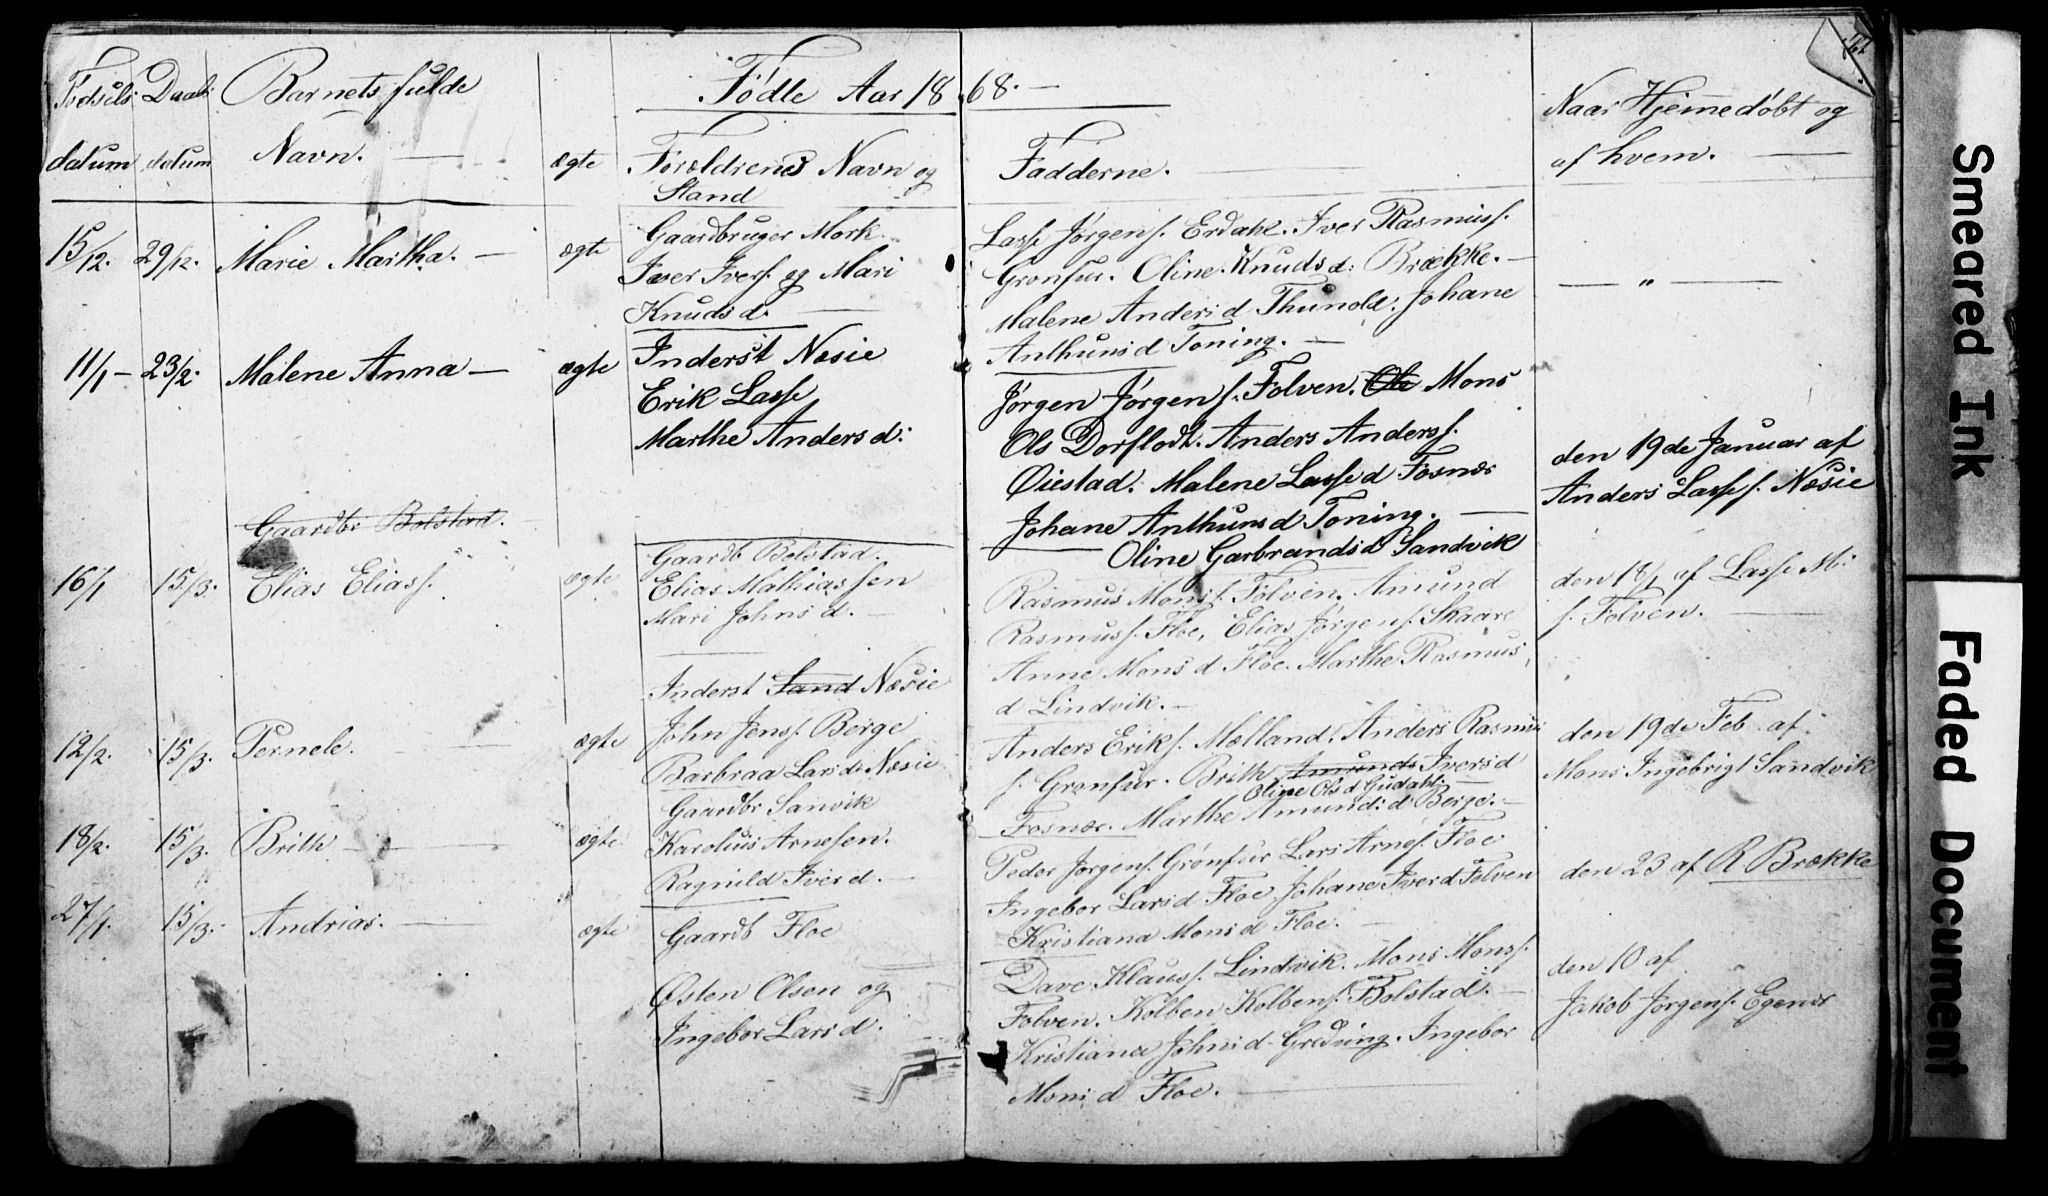 Fødte Aar 1868. —
Fødsels datum
Daab datum
Barnets fulde Navn. —
ægte
Forældrenes Navn og Stand
Fadderne. —
Naar Hjemmedøbt og af hvem. —
15/12. 29/12. Marie Martha. — ægte
Gaardbruger Mork
Iver Ivers. og Mari
Knudsd. —
Lasse Jørgens. Erdahl. Iver Rasmuss.
Gronfur. Oline Knudsd: Brække. —
Malene Andersd Thunold. Johane
Anthunsd Toning. —
— " —
11/1 — 23/2. Malene Anna — ægte
Inderst Næsie
Erik Lasse
Marthe Andersd:
Jørgen Jørgens. Folven. Ole Mons
Ols Dorflodt. Anders Anderss.
Øiestad. Malene Lassed Fosnæs
Johane Anthunsd Toning. —
Oline Garbrandsd Sandvik
den 19de Januar af
Anders Lasses. Næsie
Gaardbr Bolstad.
16/1 15/3. Elias Eliass. ægte
Gaardb Bolstad.
Elias Mathiassen
Mari Johnsd. —
Rasmus Monss. Folven. Amund
Rasmuss. Floe, Elias Jørgens. Skaare
Anne Monsd Floe. Marthe Rasmus
d Lindvik. —
den 18/1 af Lasse M:
s. Folven. —
12/2. 15/3. Pernele. — ægte
Inderst Sand Næsie
John Jenss. Berge
Barbraa Larsd. Næsie
Anders Eriks. Mælland. Anders Rasmus
s. Gronfur. Brith Amunds Iversd
Oline Olsd Gudahl
Fosnæs. Marthe Amundsd Berge. —
den 19de Feb. af
Mons Ingebrigt Sandvik
18/2. 15/3. Brith — ægte
Gaardbr Sanvik
Karolius Arnesen.
Ragnild Iversd. —
Peder Jørgens. Grønfur Lars Arnes. Floe
Ingebor Larsd Floe Johane Iverd Folven
Kristiana Monsd Floe. —
den 23 af R Brække
27/1. 15/3. Andrias. — ægte
Gaardb Floe
Østen Olsen og
Ingebor Larsd.
Dave Klauss. Lindvik. Mons Monss.
Folven. Kolben Kolbens. Bolstad. —
Kristiana Johnsd Greduing. Ingebor
Monsd Floe. —
den 10 af
Jakob Jørgens. Egenæs
Smeared Ink
Faded Document